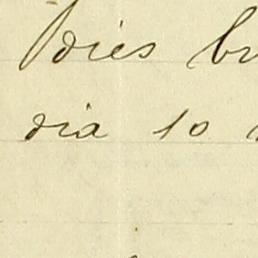 dies br
dia 10